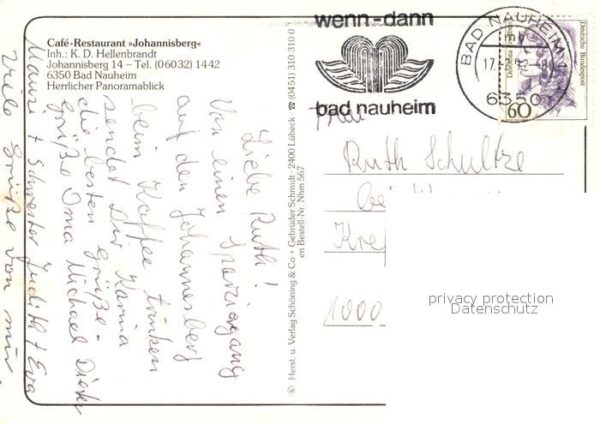 Café-Restaurant »Johannisberg«
Inh.: K. D. Hellenbrandt
Johannisberg 14 – Tel. (06032) 1442
6350 Bad Nauheim
Herrlicher Panoramablick
Liebe Ruth!
Von einen Spaziergang
auf den Johannesberg
beim Kaffee trinken
sendet Dir Karina
die besten Grüße -
Grüße Oma Michael Dieter
+ Schwester Judith + Eva
Viele Grüße von mir.
© Herst. u. Verlag Schöning & Co + Gebrüder Schmidt · 2400 Lübeck · ☎ (0451) 310 310
en Bestell-Nr. Nhm 567
wenn-dann
bad nauheim
BAD NAUHEIM
6350
Deutsche Bundespost
60
Frau
Ruth Schultze
bei
Kre
1000
privacy protection
Datenschutz